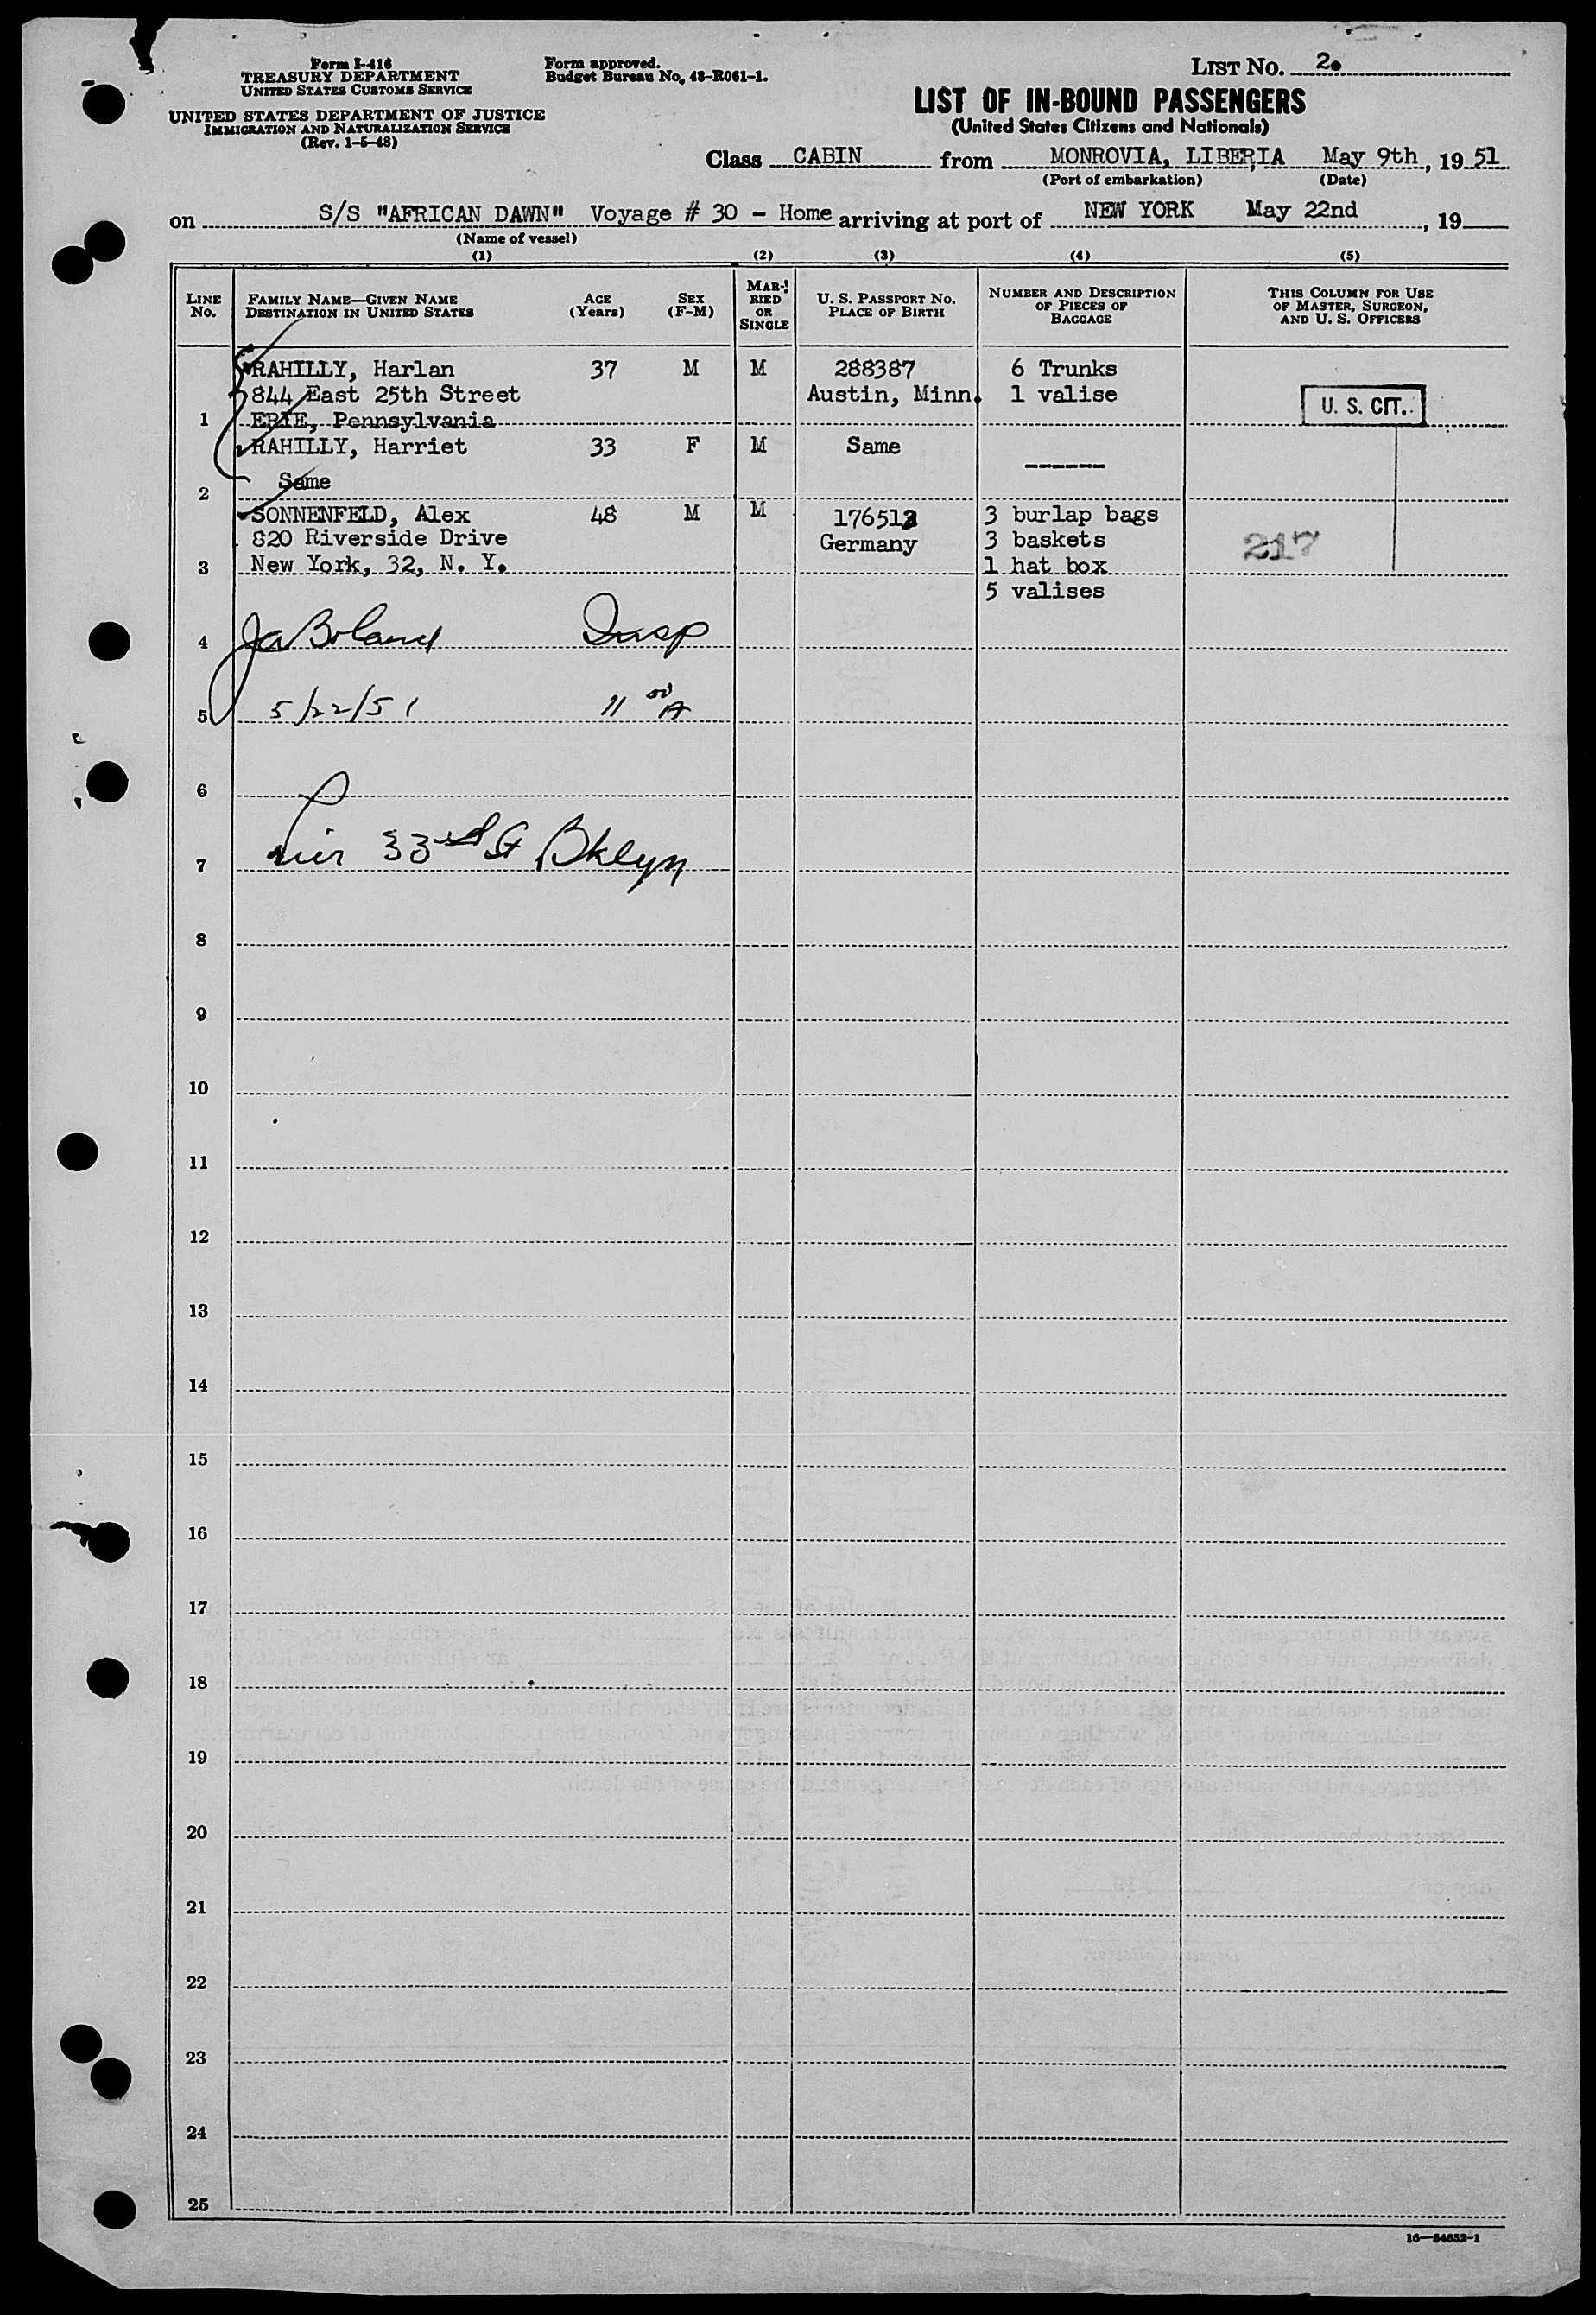 Form I-416
TREASURY DEPARTMENT
UNITED STATES CUSTOMS SERVICE
UNITED STATES DEPARTMENT OF JUSTICE
IMMIGRATION AND NATURALIZATION SERVICE
(Rev. 1-5-48)
Form approved.
Budget Bureau No. 43-R061-1.
LIST NO. 2.
LIST OF IN-BOUND PASSENGERS
(United States Citizens and Nationals)
Class CABIN from MONROVIA, LIBERIA May 9th, 19 51
(Port of embarkation) (Date)
on S/S "AFRICAN DAWN" Voyage # 30 - Home arriving at port of NEW YORK May 22nd, 19
(Name of vessel)
(1) (2) (3) (4) (5)
LINE No. FAMILY NAME—GIVEN NAME DESTINATION IN UNITED STATES AGE (Years) SEX (F-M) MARRIED OR SINGLE U. S. PASSPORT NO. PLACE OF BIRTH NUMBER AND DESCRIPTION OF PIECES OF BAGGAGE THIS COLUMN FOR USE OF MASTER, SURGEON, AND U. S. OFFICERS
RAHILLY, Harlan 37 M M 288387 6 Trunks
844 East 25th Street Austin, Minn. 1 valise
1 ERIE, Pennsylvania U. S. CIT.
RAHILLY, Harriet 33 F M Same ------
2 Same
SONNENFELD, Alex 48 M M 176512 3 burlap bags
820 Riverside Drive Germany 3 baskets 217
3 New York, 32, N. Y. 1 hat box
5 valises
4 Ja Boland Insp
5 5/22/51 11 00 A
6
7 Pier 33rd St Bklyn
8
9
10
11
12
13
14
15
16
17
18
19
20
21
22
23
24
25
16—54652-1